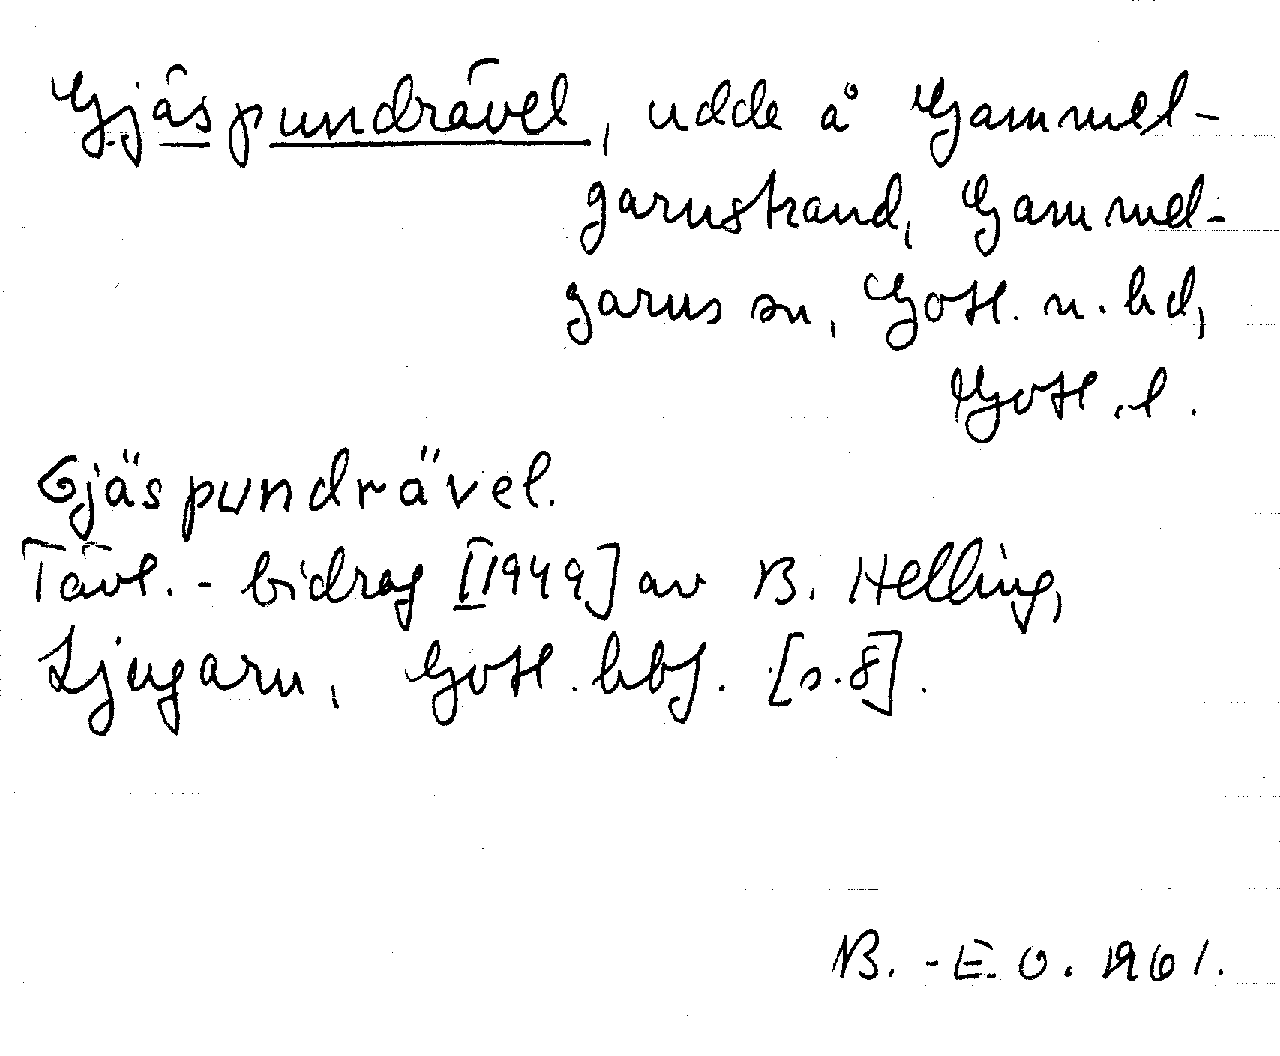 Gjäspundrävel, udde å Gammel-
garnstrand, Gammel-
garns sn, Gotl. n. hd,
Gotl. l.
Gjäspundrävel.
Tävl.-bidrag [1949] av B. Helling,
Ljugarn, Gotl. hbf. [s. 8].
B.-E. O. 1961.